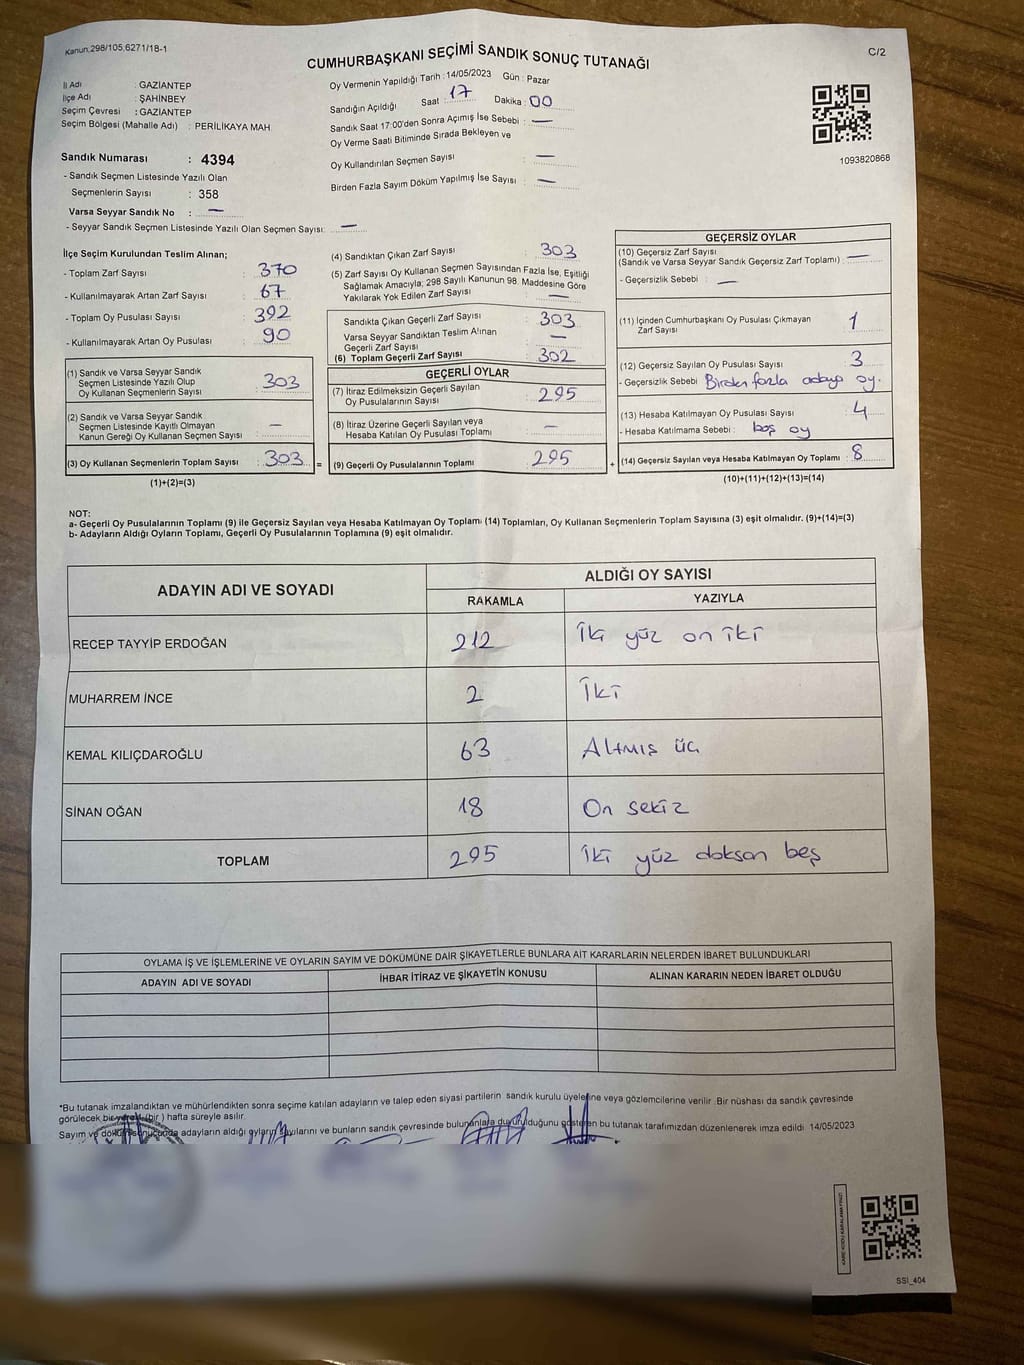 Kanun.298/105,6271/18-1
CUMHURBAŞKANI SEÇİMİ SANDIK SONUÇ TUTANAĞI
C/2
İl Adı : GAZİANTEP
İlçe Adı : ŞAHİNBEY
Seçim Çevresi : GAZİANTEP
Seçim Bölgesi (Mahalle Adı) : PERİLİKAYA MAH
Oy Vermenin Yapıldığı Tarih : 14/05/2023 Gün : Pazar
Sandığın Açıldığı Saat : 17 Dakika : 00
Sandık Saat 17:00'den Sonra Açımış İse Sebebi : —
Oy Verme Saati Bitiminde Sırada Bekleyen ve
Oy Kullandırılan Seçmen Sayısı : —
Birden Fazla Sayım Döküm Yapılmış İse Sayısı : —
1093820868
Sandık Numarası : 4394
- Sandık Seçmen Listesinde Yazılı Olan
Seçmenlerin Sayısı : 358
Varsa Seyyar Sandık No : —
- Seyyar Sandık Seçmen Listesinde Yazılı Olan Seçmen Sayısı: —
İlçe Seçim Kurulundan Teslim Alınan;
- Toplam Zarf Sayısı : 370
- Kullanılmayarak Artan Zarf Sayısı : 67
- Toplam Oy Pusulası Sayısı : 392
- Kullanılmayarak Artan Oy Pusulası : 90
(1) Sandık ve Varsa Seyyar Sandık
Seçmen Listesinde Yazılı Olup
Oy Kullanan Seçmenlerin Sayısı : 303
(2) Sandık ve Varsa Seyyar Sandık
Seçmen Listesinde Kayıtlı Olmayan
Kanun Gereği Oy Kullanan Seçmen Sayısı : —
(3) Oy Kullanan Seçmenlerin Toplam Sayısı : 303 =
(1)+(2)=(3)
(4) Sandıktan Çıkan Zarf Sayısı : 303
(5) Zarf Sayısı Oy Kullanan Seçmen Sayısından Fazla İse, Eşitliği
Sağlamak Amacıyla; 298 Sayılı Kanunun 98. Maddesine Göre
Yakılarak Yok Edilen Zarf Sayısı : —
Sandıkta Çıkan Geçerli Zarf Sayısı : 303
Varsa Seyyar Sandıktan Teslim Alınan
Geçerli Zarf Sayısı : —
(6) Toplam Geçerli Zarf Sayısı : 302
GEÇERLİ OYLAR
(7) İtiraz Edilmeksizin Geçerli Sayılan
Oy Pusulalarının Sayısı : 295
(8) İtiraz Üzerine Geçerli Sayılan veya
Hesaba Katılan Oy Pusulası Toplamı : —
(9) Geçerli Oy Pusulalarının Toplamı : 295 +
GEÇERSİZ OYLAR
(10) Geçersiz Zarf Sayısı
(Sandık ve Varsa Seyyar Sandık Geçersiz Zarf Toplamı) : —
- Geçersizlik Sebebi : —
(11) İçinden Cumhurbaşkanı Oy Pusulası Çıkmayan
Zarf Sayısı : 1
(12) Geçersiz Sayılan Oy Pusulası Sayısı : 3
- Geçersizlik Sebebi : Birden fazla adaya oy.
(13) Hesaba Katılmayan Oy Pusulası Sayısı : 4
- Hesaba Katılmama Sebebi : boş oy
(14) Geçersiz Sayılan veya Hesaba Katılmayan Oy Toplamı : 8
(10)+(11)+(12)+(13)=(14)
NOT:
a- Geçerli Oy Pusulalarının Toplamı (9) ile Geçersiz Sayılan veya Hesaba Katılmayan Oy Toplamı (14) Toplamları, Oy Kullanan Seçmenlerin Toplam Sayısına (3) eşit olmalıdır. (9)+(14)=(3)
b- Adayların Aldığı Oyların Toplamı, Geçerli Oy Pusulalarının Toplamına (9) eşit olmalıdır.
ADAYIN ADI VE SOYADI
ALDIĞI OY SAYISI
RAKAMLA YAZIYLA
RECEP TAYYİP ERDOĞAN 212 İki yüz on iki
MUHARREM İNCE 2 İki
KEMAL KILIÇDAROĞLU 63 Altmış üç
SİNAN OĞAN 18 On sekiz
TOPLAM 295 İki yüz doksan beş
OYLAMA İŞ VE İŞLEMLERİNE VE OYLARIN SAYIM VE DÖKÜMÜNE DAİR ŞİKAYETLERLE BUNLARA AİT KARARLARIN NELERDEN İBARET BULUNDUKLARI
ADAYIN ADI VE SOYADI İHBAR İTİRAZ VE ŞİKAYETİN KONUSU ALINAN KARARIN NEDEN İBARET OLDUĞU
*Bu tutanak imzalandıktan ve mühürlendikten sonra seçime katılan adayların ve talep eden siyasi partilerin sandık kurulu üyelerine veya gözlemcilerine verilir .Bir nüshası da sandık çevresinde
görülecek bir yere 1 (bir ) hafta süreyle asılır.
Sayım ve döküm sonucunda adayların aldığı oyların sayılarını ve bunların sandık çevresinde bulunanlara duyurulduğunu gösteren bu tutanak tarafımızdan düzenlenerek imza edildi. 14/05/2023
SSI_404